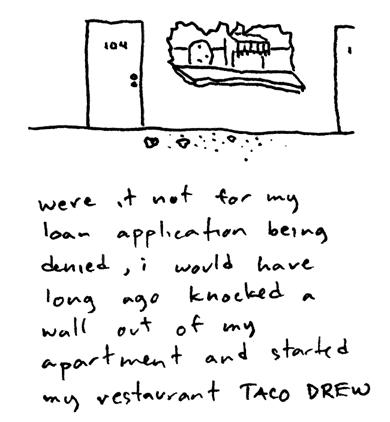 104
were it not for my
loan application being
denied, i would have
long ago knocked a
wall out of my
apartment and started
my restaurant TACO DREW